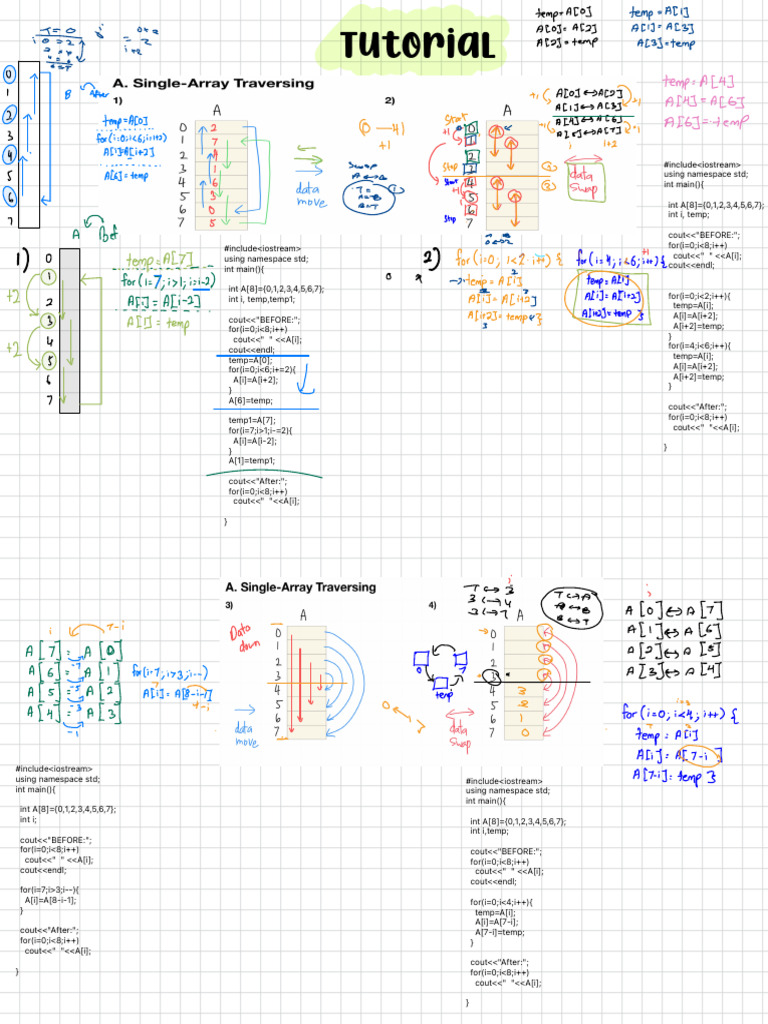 TUTORIAL
temp=A[0]
A[0]=A[2]
A[2]=temp
temp=A[i]
A[i]=A[3]
A[3]=temp
T=0
A. Single-Array Traversing
1)
temp=A[0]
for(i=0;i<6;i+=2)
A[i]=A[i+2]
A[6]=temp
A
0 2
1 7
2 4
3 1
4 6
5 3
6 0
7 5
data
move
0
1
2
3
4
5
6
7
B
After
2)
0 4
+1
Swap
A↔B
T=
A=B
B=T
A
Start
Stop
Start
Stop
0
1
2
3
4
5
6
7
A[0]↔A[2]
A[1]↔A[3]
A[4]↔A[6]
A[5]↔A[7]
+1
i
i+2
data
swap
temp=A[4]
A[4]=A[6]
A[6]=temp
A Bef
1)
+2
+2
0
1
2
3
4
5
6
7
temp=A[7]
for(i=7;i>1;i=i-2)
A[i]=A[i-2]
A[1]=temp
#include<iostream>
using namespace std;
int main(){
int A[8]={0,1,2,3,4,5,6,7};
int i, temp,temp1;
cout<<"BEFORE:";
for(i=0;i<8;i++)
cout<<"  " <<A[i];
cout<<endl;
temp=A[0];
for(i=0;i<6;i+=2){
A[i]=A[i+2];
}
A[6]=temp;
temp1=A[7];
for(i=7;i>1;i-=2){
A[i]=A[i-2];
}
A[1]=temp1;
cout<<"After:";
for(i=0;i<8;i++)
cout<<"  "<<A[i];
}
2) for(i=0; i<2 i++) {
temp=A[i]
A[i]=A[i+2]
A[i+2]=temp }
for(i=4; i<6; i++) {
temp=A[i]
A[i]=A[i+2]
A[i+2]=temp }
#include<iostream>
using namespace std;
int main(){
int A[8]={0,1,2,3,4,5,6,7};
int i, temp;
cout<<"BEFORE:";
for(i=0;i<8;i++)
cout<<"  " <<A[i];
cout<<endl;
for(i=0;i<2;i++){
temp=A[i];
A[i]=A[i+2];
A[i+2]=temp;
}
for(i=4;i<6;i++){
temp=A[i];
A[i]=A[i+2];
A[i+2]=temp;
}
cout<<"After:";
for(i=0;i<8;i++)
cout<<"  "<<A[i];
}
A. Single-Array Traversing
i 7-i
A[7]=A[0]
A[6]=A[1]
A[5]=A[2]
A[4]=A[3]
for(i=7; i>3; i--)
A[i]=A[8-i-1]
7-i
3)
A
Data
down
0
1
2
3
4
5
6
7
data
move
4)
0
7
temp
A
0
1
2
3
4 3
5 2
6 1
7 0
data
swap
T↔A
A↔B
B↔T
i
A[0]↔A[7]
A[1]↔A[6]
A[2]↔A[5]
A[3]↔A[4]
for(i=0; i<4; i++) {
temp = A[i]
A[i]= A[7-i]
A[7-i]= temp }
#include<iostream>
using namespace std;
int main(){
int A[8]={0,1,2,3,4,5,6,7};
int i;
cout<<"BEFORE:";
for(i=0;i<8;i++)
cout<<"  " <<A[i];
cout<<endl;
for(i=7;i>3;i--){
A[i]=A[8-i-1];
}
cout<<"After:";
for(i=0;i<8;i++)
cout<<"  "<<A[i];
}
#include<iostream>
using namespace std;
int main(){
int A[8]={0,1,2,3,4,5,6,7};
int i,temp;
cout<<"BEFORE:";
for(i=0;i<8;i++)
cout<<"  " <<A[i];
cout<<endl;
for(i=0;i<4;i++){
temp=A[i];
A[i]=A[7-i];
A[7-i]=temp;
}
cout<<"After:";
for(i=0;i<8;i++)
cout<<"  "<<A[i];
}